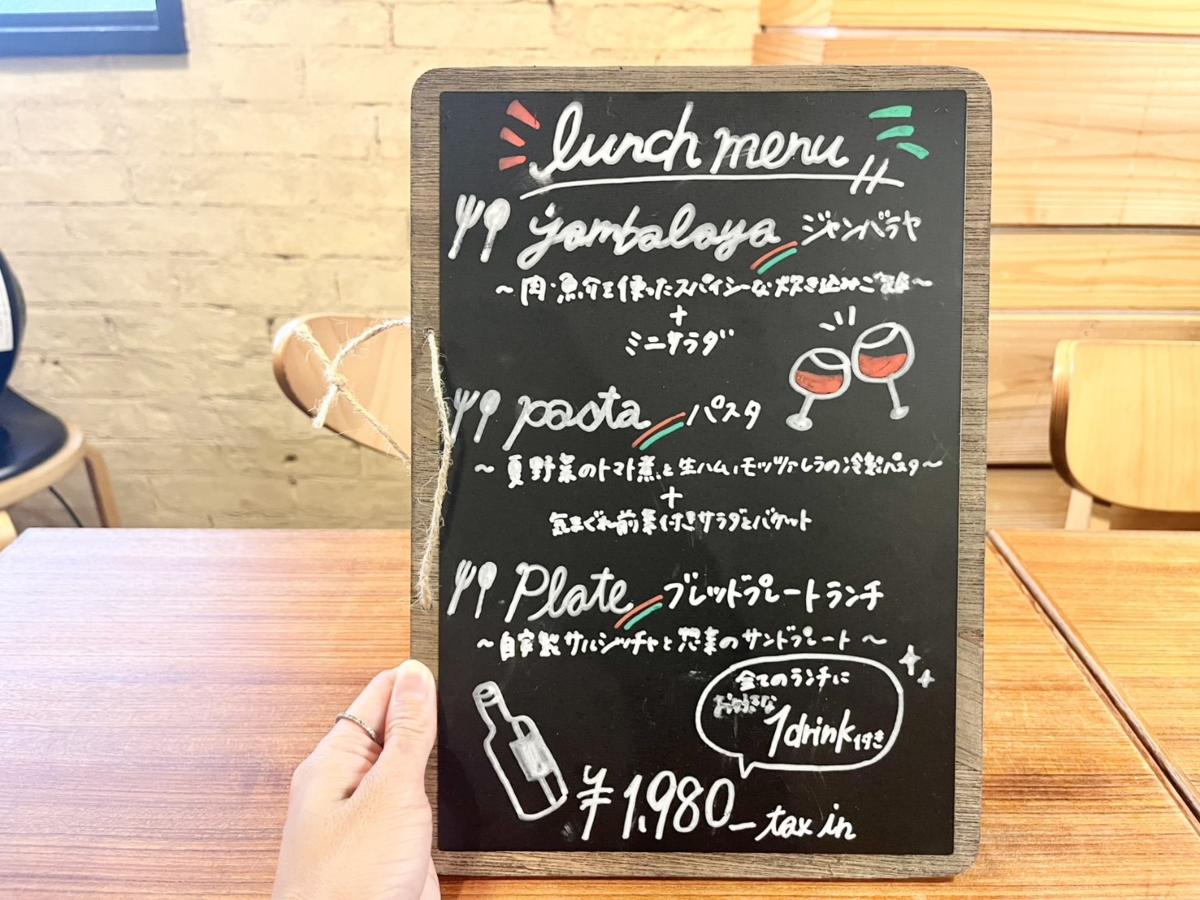 lunch menu
jambalaya ジャンバラヤ
~肉・魚介を使ったスパイシーな炊き込みご飯~
+
ミニサラダ
pasta パスタ
~夏野菜のトマト煮と生ハム、モッツァレラの冷製パスタ~
+
気まぐれ前菜付きサラダとバケット
Plate ブレッドプレートランチ
~自家製サルシッチャと惣菜のサンドプレート~
全てのランチに
お好きな
1drink付き
¥1,980- tax in